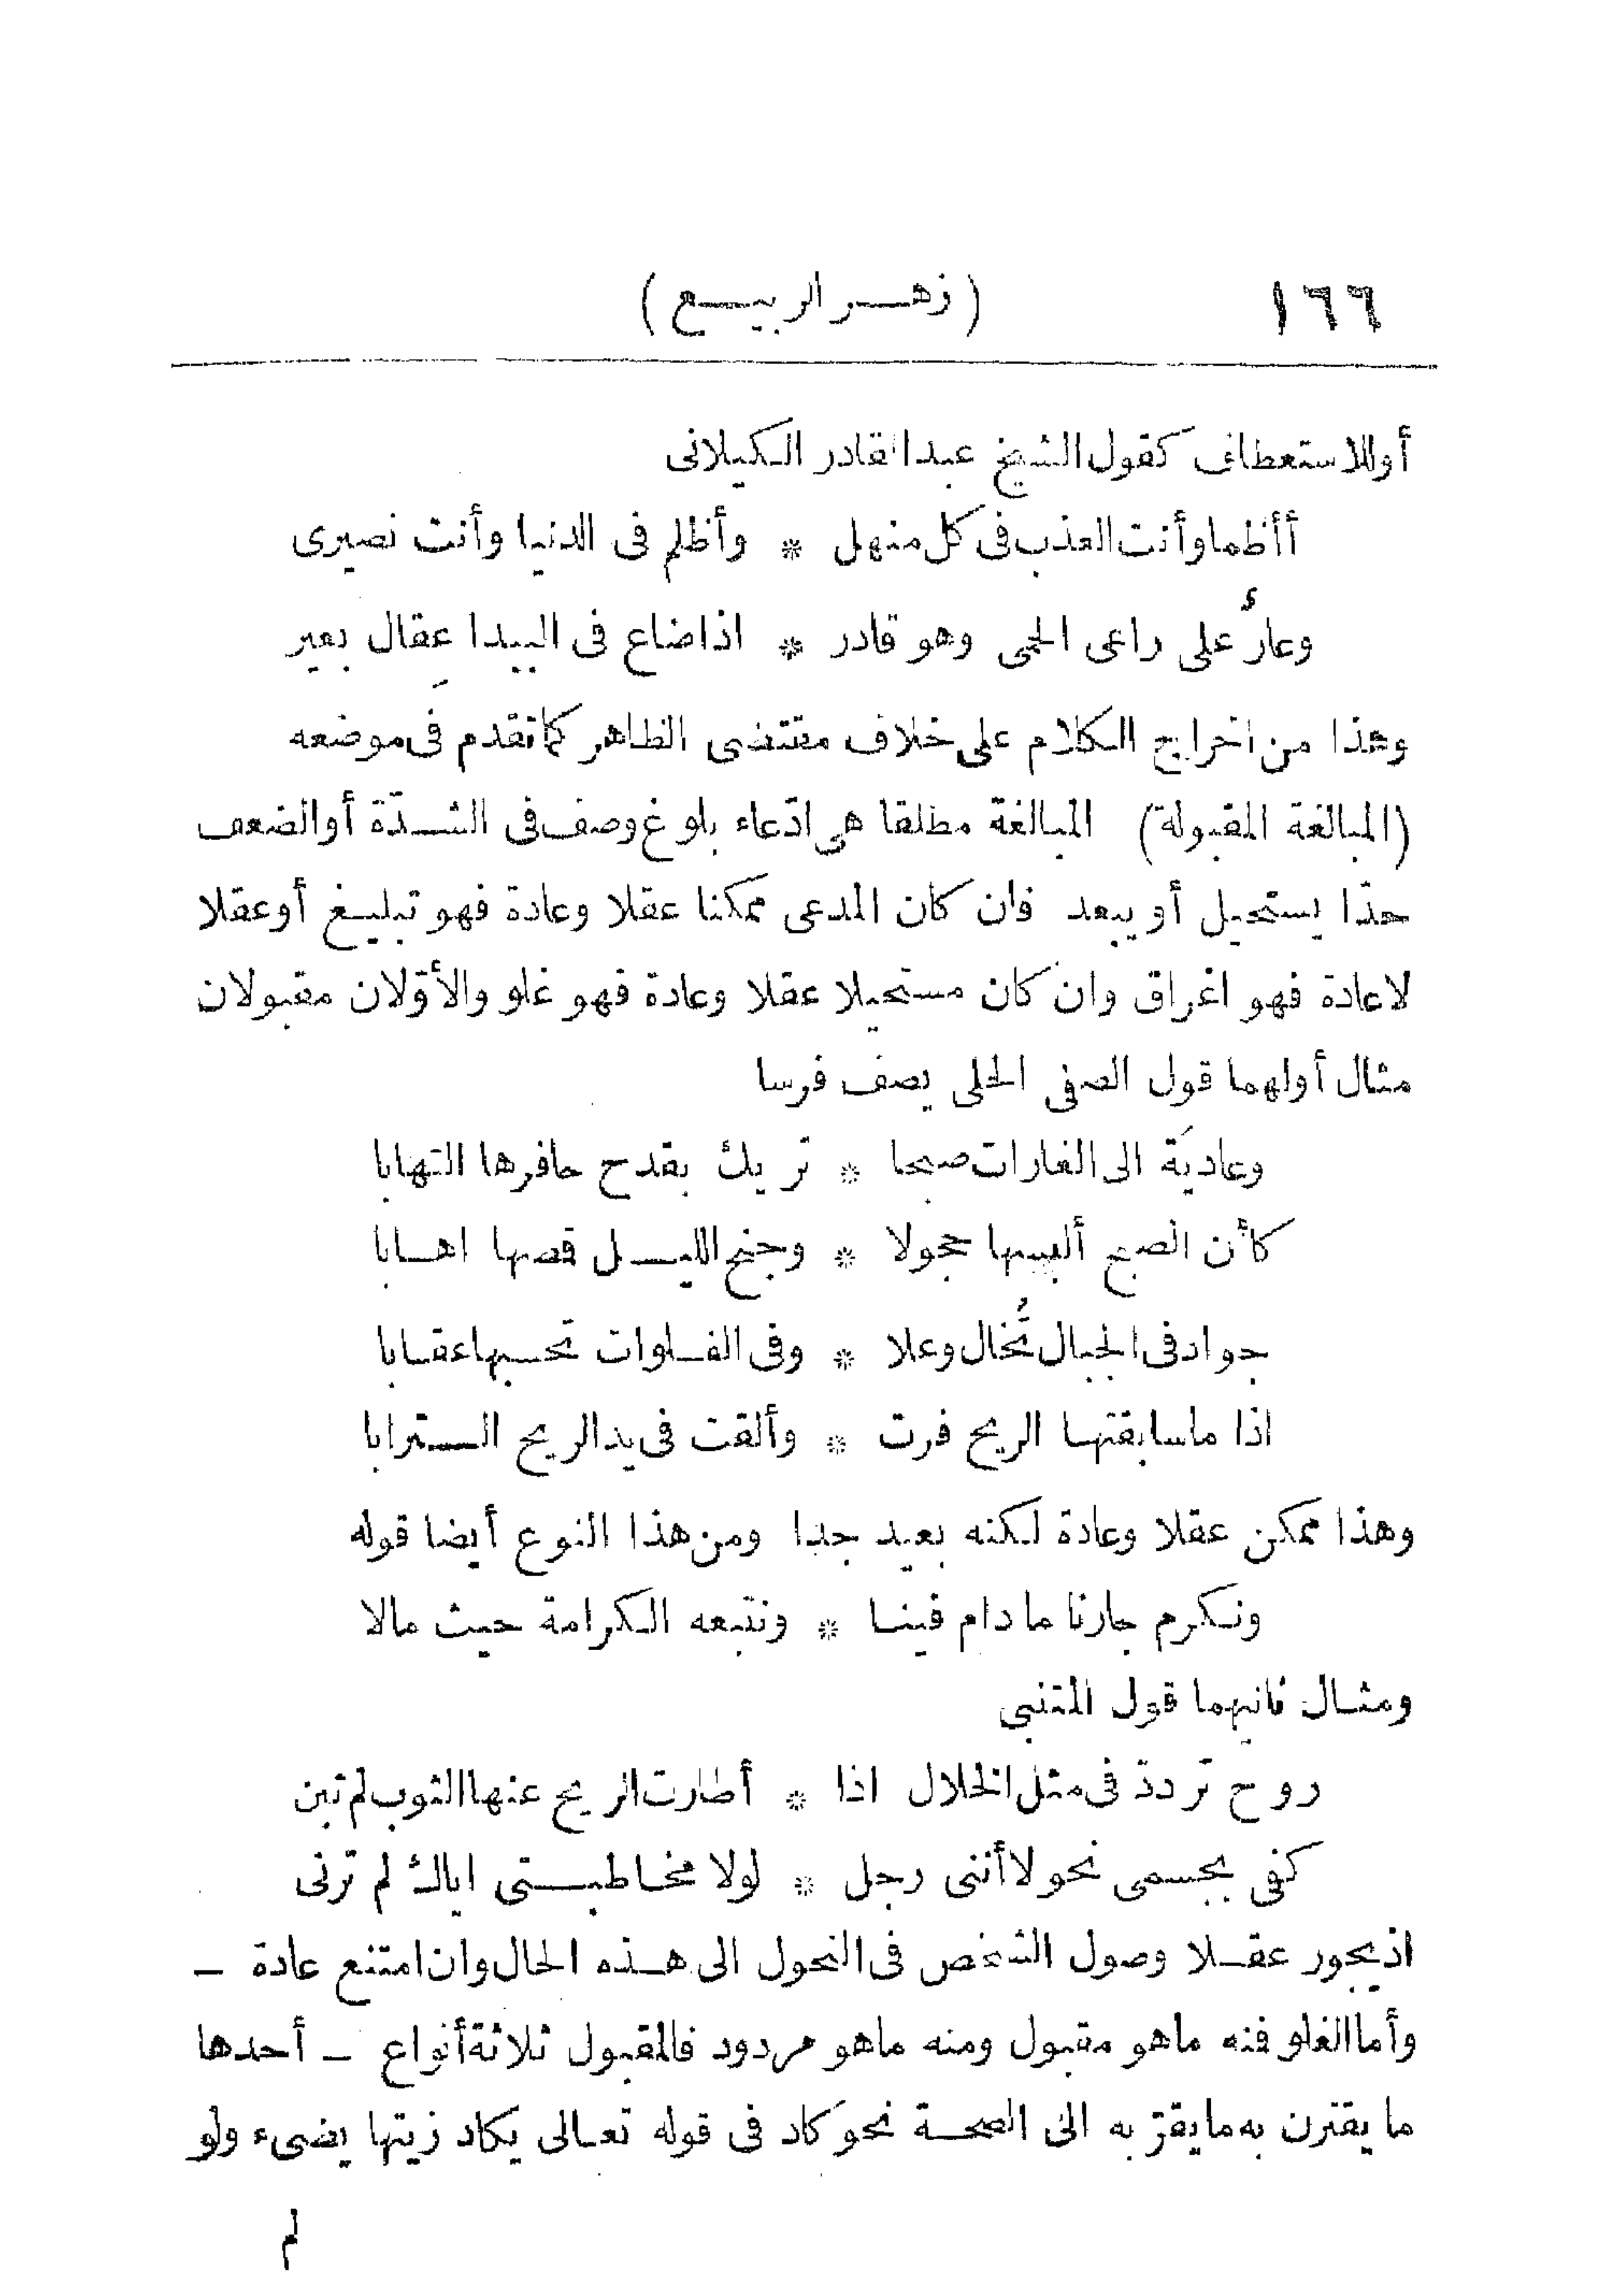 ١٦٦
(زهر الربيع)
أوللاستعطاف كقول الشيخ عبد القادر الكيلانى
أأظما وأنت العذب فى كل منهل * وأظلم فى الدنيا وأنت نصيرى
وعارٌ على راعى الحمى وهو قادر * اذا ضاع فى البيدا عِقال بعير
وهذا من اخراج الكلام على خلاف مقتضى الظاهر كما تقدم فى موضعه
(المبالغة المقبولة) المبالغة مطلقا هى ادّعاء بلوغ وصف فى الشدّة أو الضعف
حدّا يستحيل أو يبعد فان كان المدعى ممكنا عقلا وعادة فهو تبليغ أو عقلا
لا عادة فهو اغراق وان كان مستحيلا عقلا وعادة فهو غلو والأوّلان مقبولان
مثال أولهما قول الصفى الحلى يصف فرسا
وعاديَة الى الغارات صبحا * تريك بقدح حافرها التهابا
كأن الصبح ألبسها حجولا * وجنح الليل قمصها اهابا
جواد فى الجبال تُخال وعلا * وفى الفلوات تحسبها عقابا
اذا ما سابقتها الريح فرت * وألقت فى يد الريح الترابا
وهذا ممكن عقلا وعادة لكنه بعيد جدا ومن هذا النوع أيضا قوله
ونكرم جارنا ما دام فينا * ونتبعه الكرامة حيث مالا
ومثال ثانيهما قول المتنبى
روح تردد فى مثل الخلال اذا * أطارت الريح عنها الثوب لم تبن
كفى بجسمى نحولا أننى رجل * لولا مخاطبتى اياك لم ترنى
اذ يجوز عقلا وصول الشخص فى النحول الى هذه الحال وان امتنع عادة –
وأما الغلو فمنه ما هو مقبول ومنه ما هو مردود فالمقبول ثلاثة أنواع – أحدها
ما يقترن به ما يقرّبه الى الصحة نحو كاد فى قوله تعالى يكاد زيتها يضىء ولو
لم